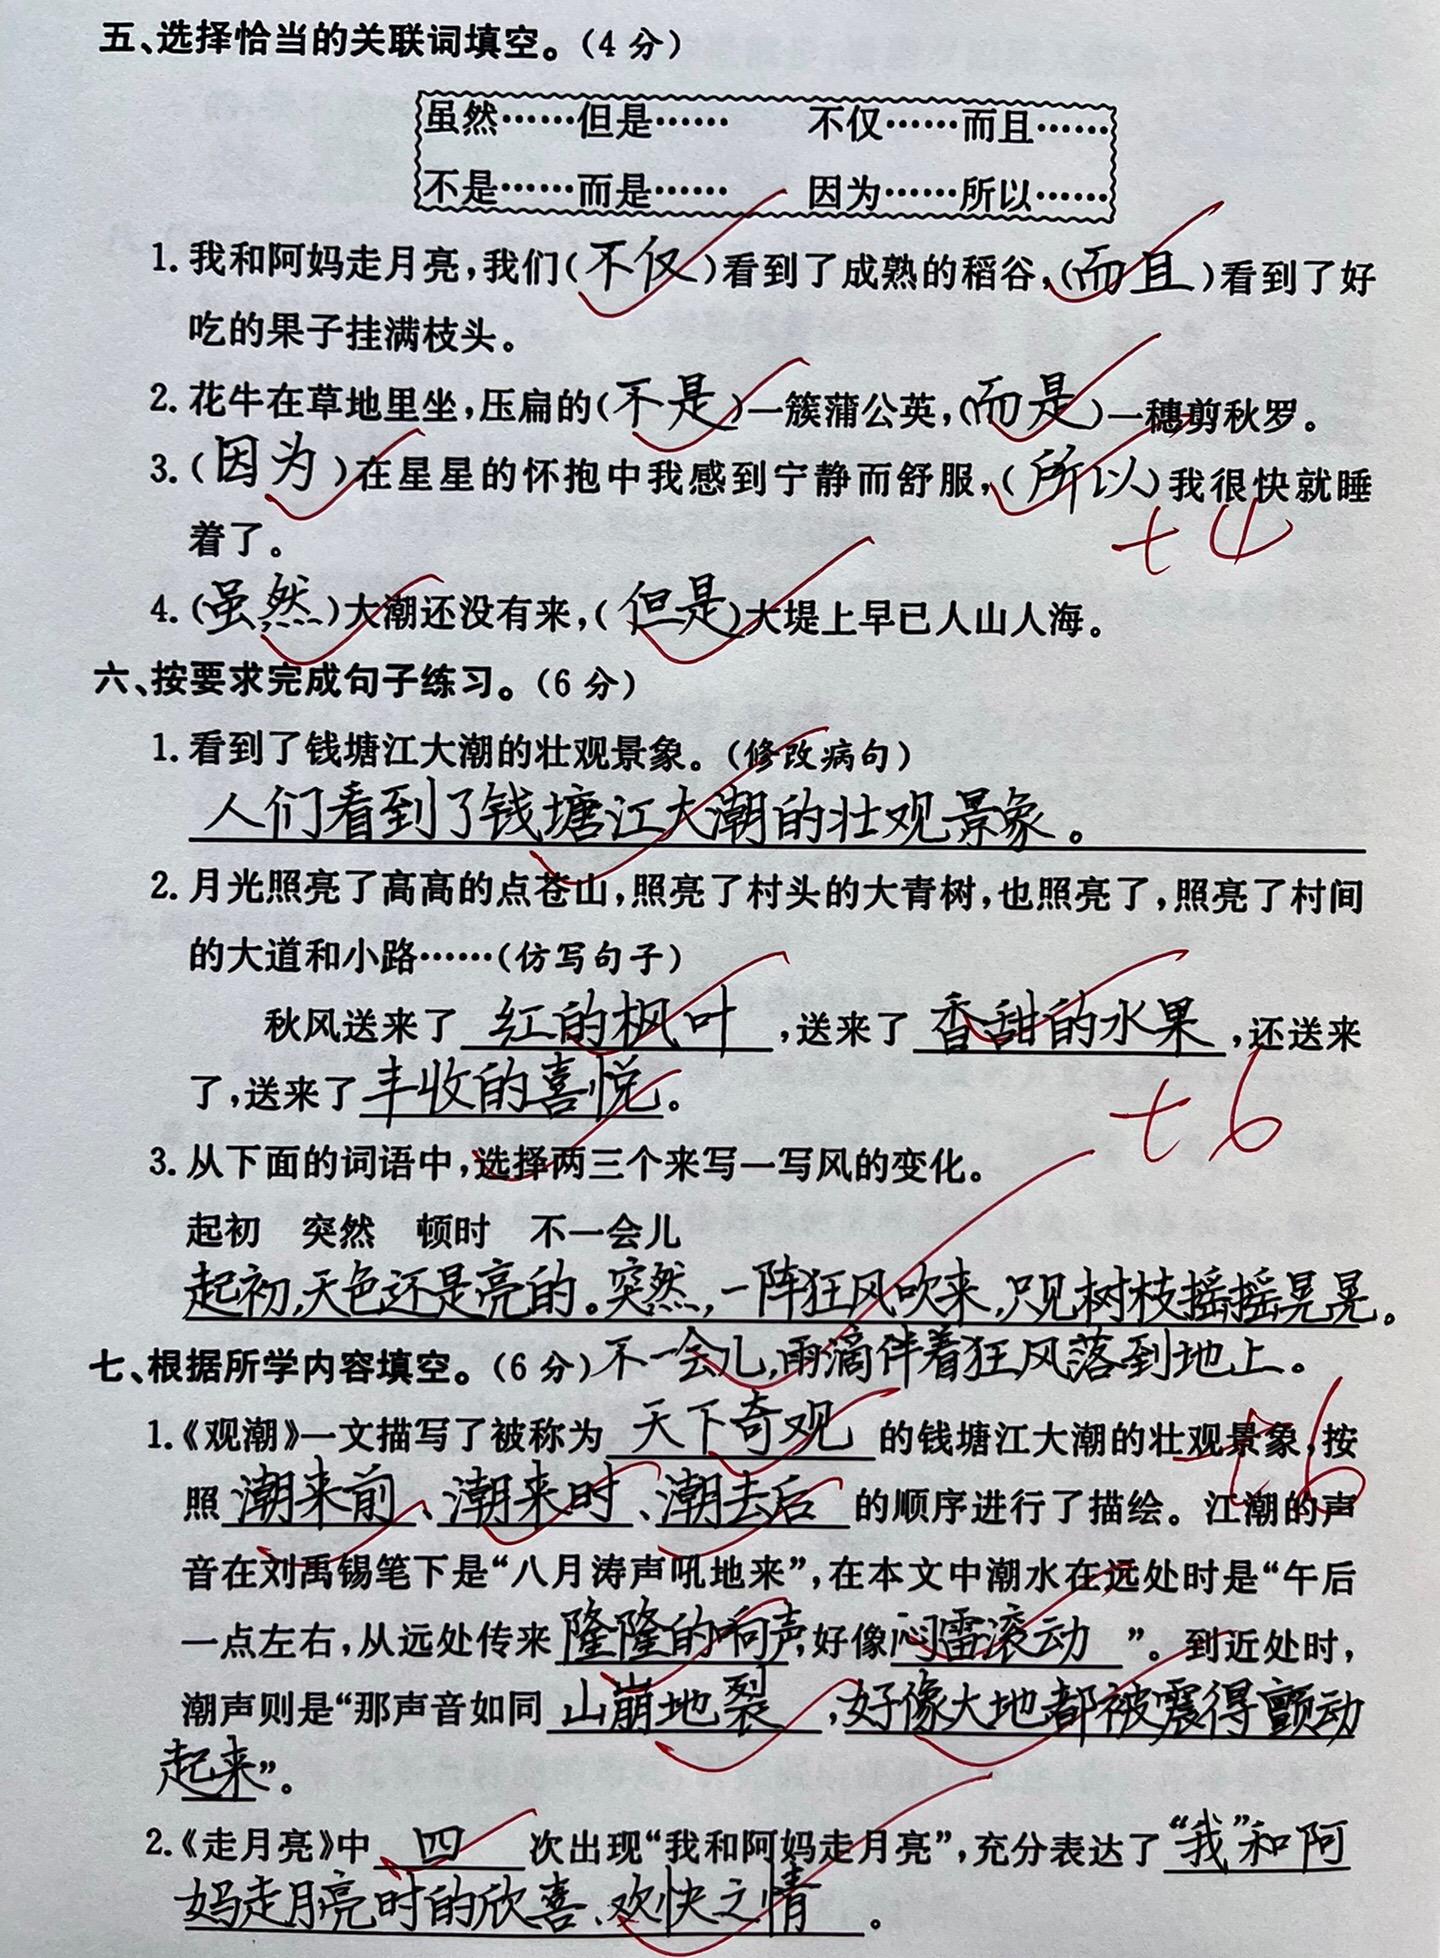 五、选择恰当的关联词填空。(4分)
虽然……但是…… 不仅……而且……
不是……而是…… 因为……所以……
1.我和阿妈走月亮,我们(不仅)看到了成熟的稻谷,(而且)看到了好
吃的果子挂满枝头。
2.花牛在草地里坐,压扁的(不是)一簇蒲公英,(而是)一穗剪秋罗。
3.(因为)在星星的怀抱中我感到宁静而舒服,(所以)我很快就睡
着了。
+4
4.(虽然)大潮还没有来,(但是)大堤上早已人山人海。
六、按要求完成句子练习。(6分)
1.看到了钱塘江大潮的壮观景象。(修改病句)
人们看到了钱塘江大潮的壮观景象。
2.月光照亮了高高的点苍山,照亮了村头的大青树,也照亮了,照亮了村间
的大道和小路……(仿写句子)
秋风送来了 红的枫叶 ,送来了 香甜的水果 ,还送来
了,送来了丰收的喜悦。
+6
3.从下面的词语中,选择两三个来写一写风的变化。
起初 突然 顿时 不一会儿
起初,天色还是亮的。突然,一阵狂风吹来,只见树枝摇摇晃晃。
七、根据所学内容填空。(6分)不一会儿,雨滴伴着狂风落到地上。
1.《观潮》一文描写了被称为 天下奇观 的钱塘江大潮的壮观景象,按
+6
照潮来前、潮来时、潮去后 的顺序进行了描绘。江潮的声
音在刘禹锡笔下是“八月涛声吼地来”,在本文中潮水在远处时是“午后
一点左右,从远处传来隆隆的响声,好像闷雷滚动 ”。到近处时,
潮声则是“那声音如同 山崩地裂 ,好像大地都被震得颤动
起来”。
2.《走月亮》中 四 次出现“我和阿妈走月亮”,充分表达了“我”和阿
妈走月亮时的欣喜、欢快之情 。